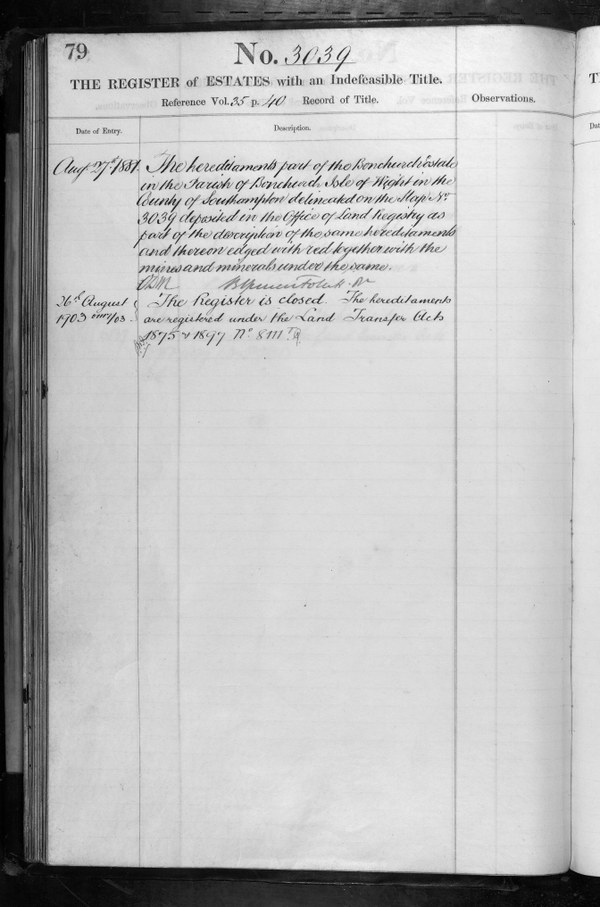 79
No. 3039
THE REGISTER of ESTATES with an Indefeasible Title.
Reference Vol. 35 p. 40 Record of Title.
Observations.
Date of Entry.
Description.
Augt 27th 1881. The hereditaments part of the Bonchurch Estate
in the Parish of Bonchurch Isle of Wight in the
County of Southampton delineated on the Map No.
3039 deposited in the Office of Land Registry as
part of the description of the same hereditaments
and thereon edged with red together with the
mines and minerals under the same.
26th August The Register is closed. The hereditaments
1903 /03 are registered under the Land Transfer Acts
1875 & 1897 No.